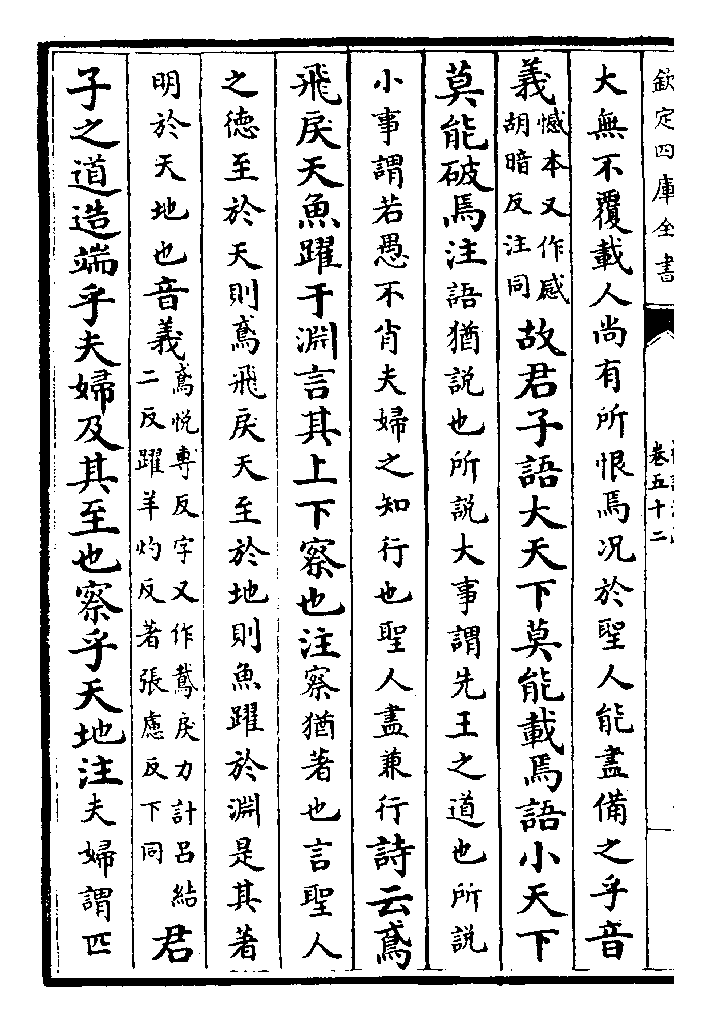 欽定四庫全書
卷五十二
大無不覆載人尚有所恨焉况於聖人能盡備之乎音
義憾本又作感胡暗反注同故君子語大天下莫能載焉語小天下
莫能破焉注語猶説也所説大事謂先王之道也所説
小事謂若愚不肖夫婦之知行也聖人盡兼行詩云鳶
飛戾天魚躍于淵言其上下察也注察猶著也言聖人
之德至於天則鳶飛戾天至於地則魚躍於淵是其著
明於天地也音義鳶悦專反字又作鵉戾力計吕結二反躍羊灼反著張慮反下同君
子之道造端乎夫婦及其至也察乎天地注夫婦謂匹